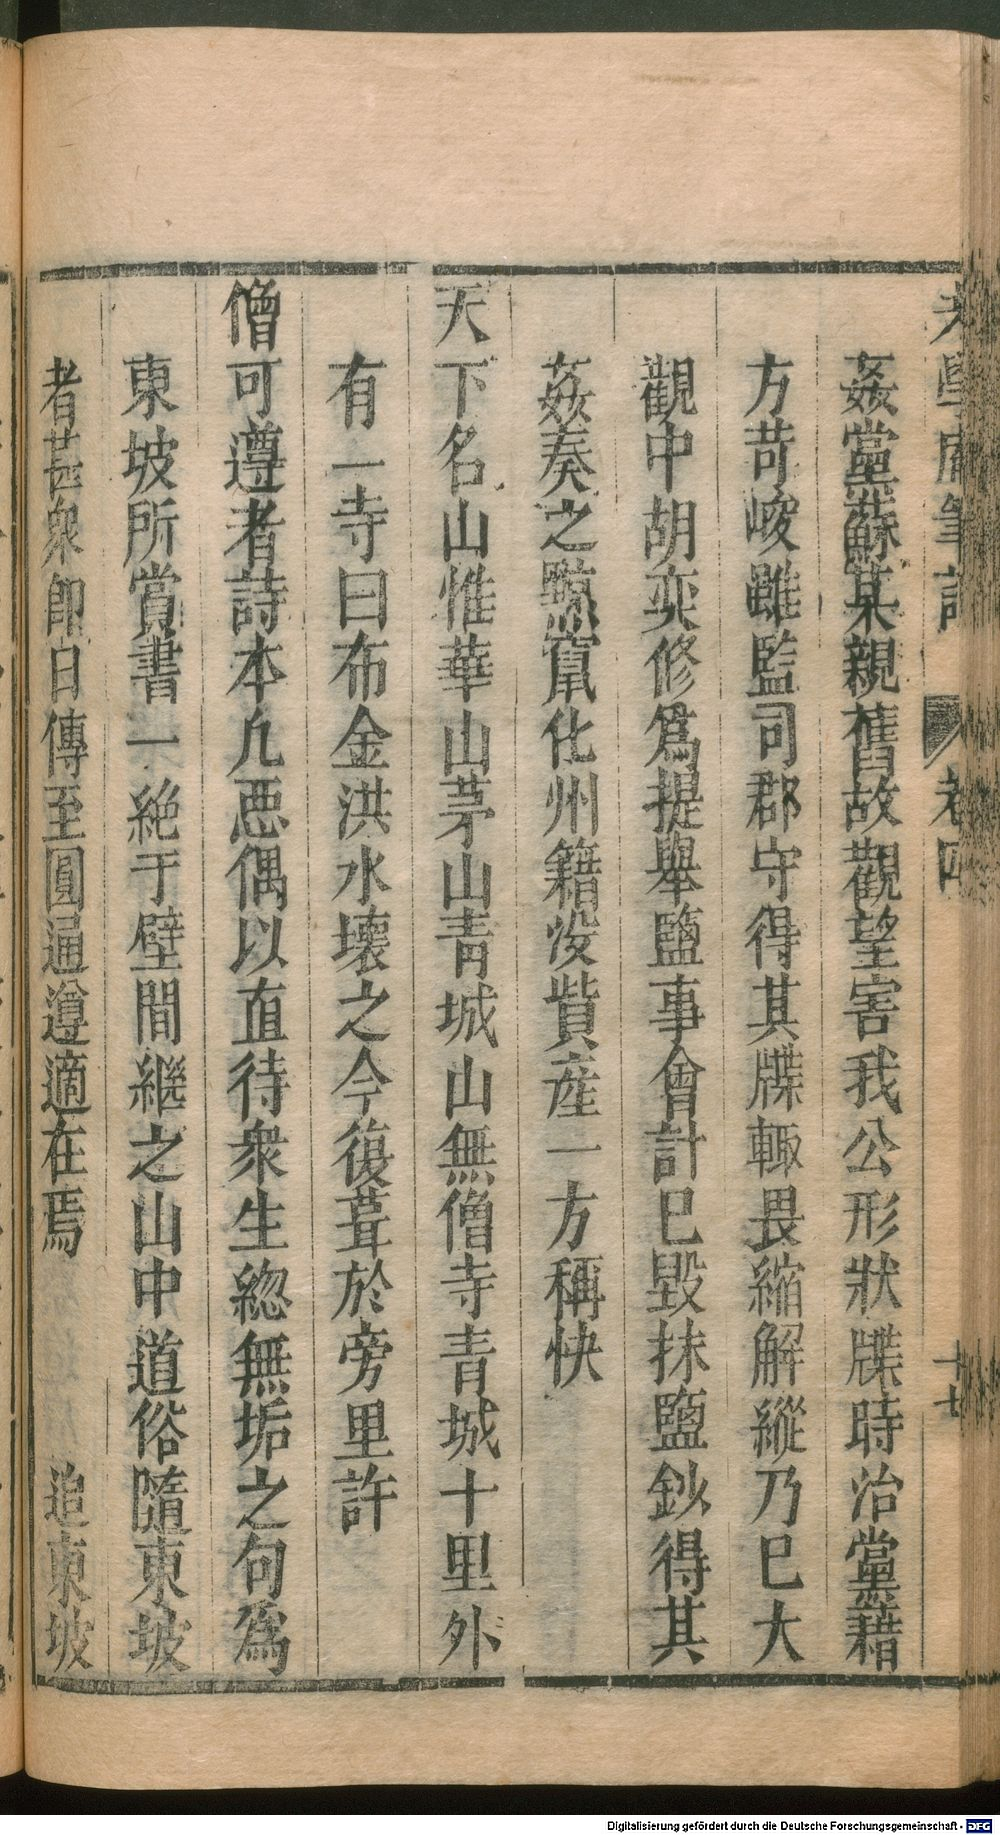 老學庵筆記 卷四 十七
姦黨蘇某親舊故觀望害我公形狀牒時治黨藉
方苛峻雖監司郡守得其牒輙畏縮解縱乃巳大
觀中胡奕修爲提舉鹽事會計巳毀抹鹽鈔得其
姦奏之黥竄化州籍没貲産一方稱快
天下名山惟華山茅山青城山無僧寺青城十里外
有一寺曰布金洪水壞之今復葺於旁里許
僧可遵者詩本凡惡偶以直待衆生緫無垢之句爲
東坡所賞書一絶于壁間繼之山中道俗隨東坡
者甚衆即日傳至圓通遵適在焉 追東坡
Digitalisierung gefördert durch die Deutsche Forschungsgemeinschaft - DFG